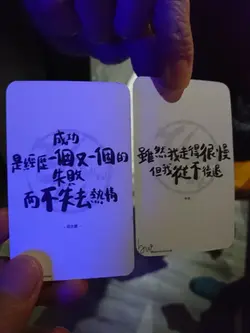 成功
是經歷一個又一個的
失敗
而不失去熱情
雖然我走得很慢
但我從不後退